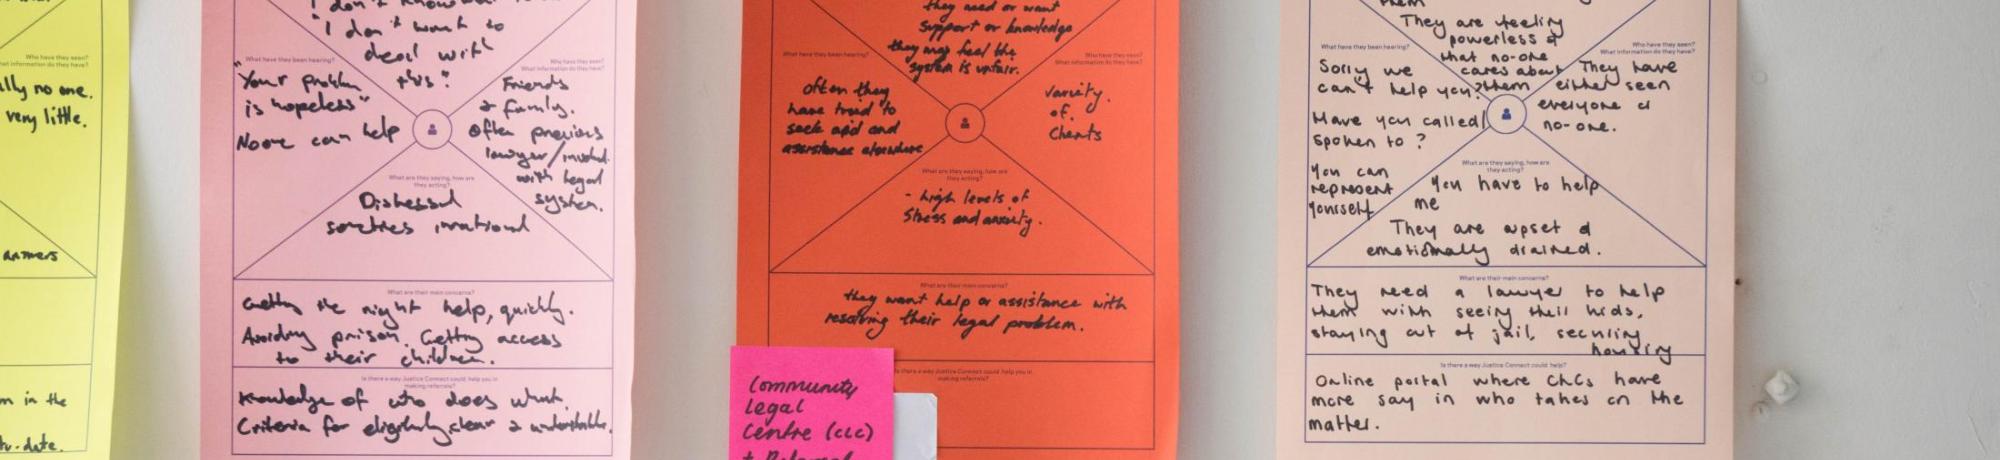 lly no one.
very little.
answers
n in the
to-date.
"I don't know
"I don't want to
deal with
this."
What have they been hearing?
Who have they seen?
What information do they have?
"Your problem
is hopeless"
No one can help
Friends
& family.
often previous
lawyer/involved
with legal
system.
What are they saying, how are
they acting?
Distressed
sometimes irrational
What are their main concerns?
Getting the right help, quickly.
Avoiding prison. Getting access
to their children.
Is there a way Justice Connect could help you in
making referrals?
Knowledge of who does what.
Criteria for eligibility clear & understandable.
they need or want
support or knowledge
they may feel the
system is unfair.
What have they been hearing?
Who have they seen?
What information do they have?
often they
have tried to
seek aid and
assistance elsewhere
variety
of
clients
What are they saying, how are
they acting?
- high levels of
stress and anxiety.
What are their main concerns?
they want help or assistance with
resolving their legal problem.
Is there a way Justice Connect could help you in
making referrals?
Community
Legal
Centre (CLC)
+ Referral
them
They are feeling
powerless &
that no-one
cares about
them
What have they been hearing?
Who have they seen?
What information do they have?
Sorry we
can't help you?
Have you called/
spoken to?
You can
represent
yourself
They have
either seen
everyone or
no-one.
What are they saying, how are
they acting?
You have to help
me
They are upset &
emotionally drained.
What are their main concerns?
They need a lawyer to help
them with seeing their kids,
staying out of jail, securing
housing
Is there a way Justice Connect could help?
Online portal where CLCs have
more say in who takes on the
matter.